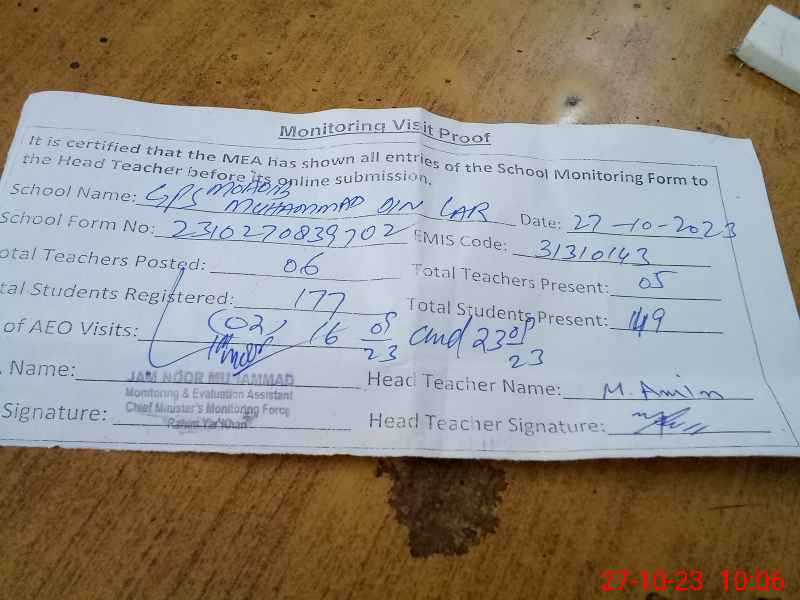 Monitoring Visit Proof
It is certified that the MEA has shown all entries of the School Monitoring Form to
the Head Teacher before its online submission.
School Name: GPS MUHAMMAD DIN LAR Date: 27-10-2023
School Form No: 2310270839702 EMIS Code: 31310143
otal Teachers Posted: 06 Total Teachers Present: 05
tal Students Registered: 177 Total Students Present: 149
of AEO Visits: (02) 16 09/23 and 23 09/23
Name: JAM NOOR MUHAMMAD Head Teacher Name: M. Amin
Monitoring & Evaluation Assistant
Chief Minister's Monitoring Force
Signature: Rahim Yar Khan Head Teacher Signature:
27-10-23 10:06